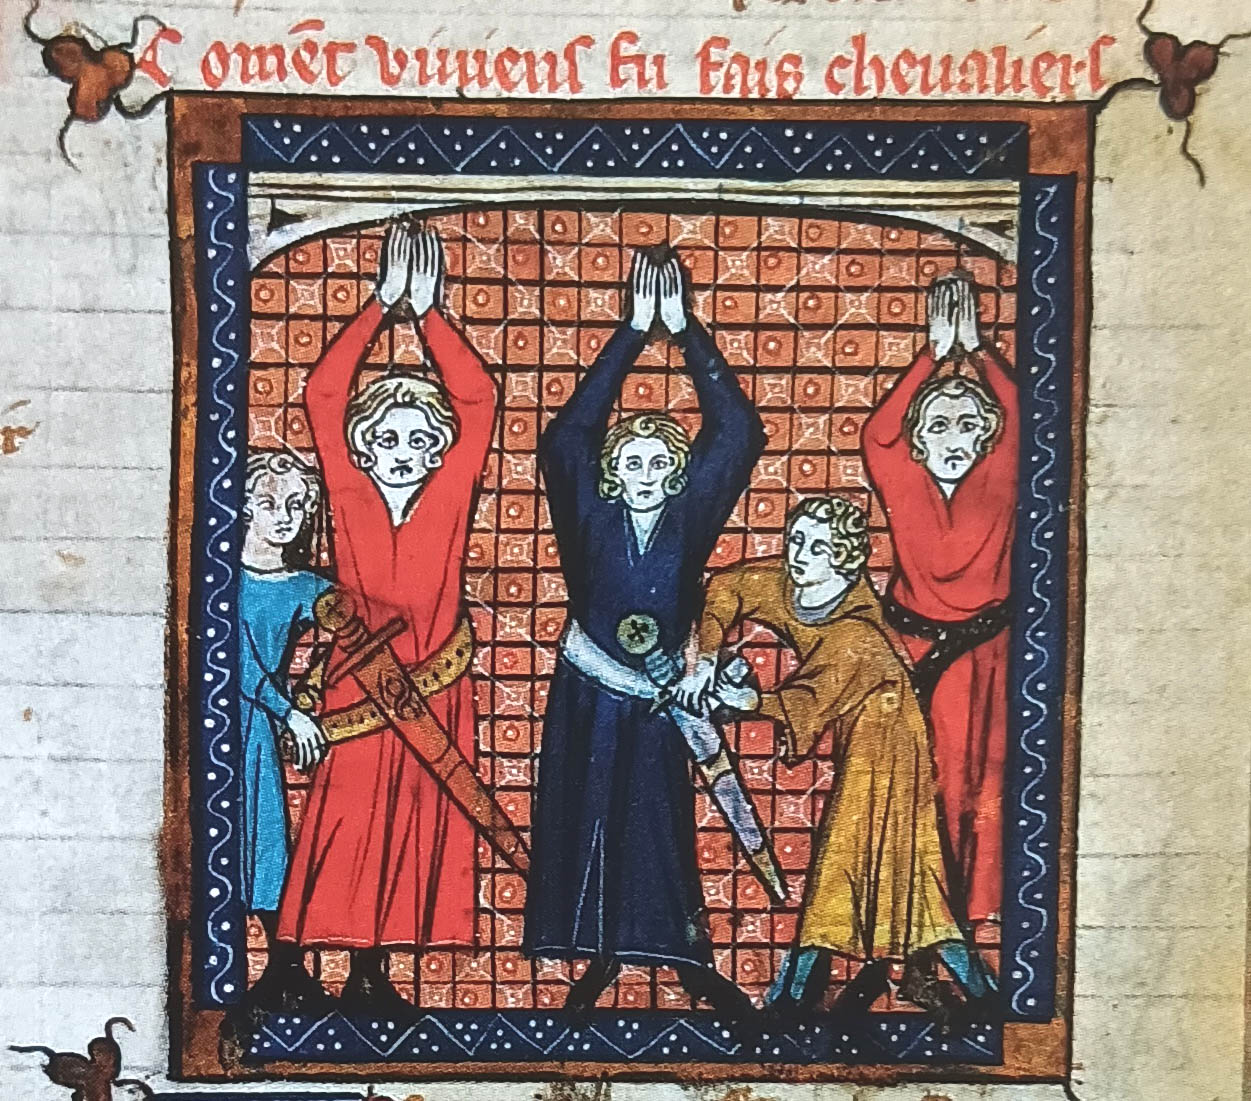 Comẽt viuiens fu fais cheualiers